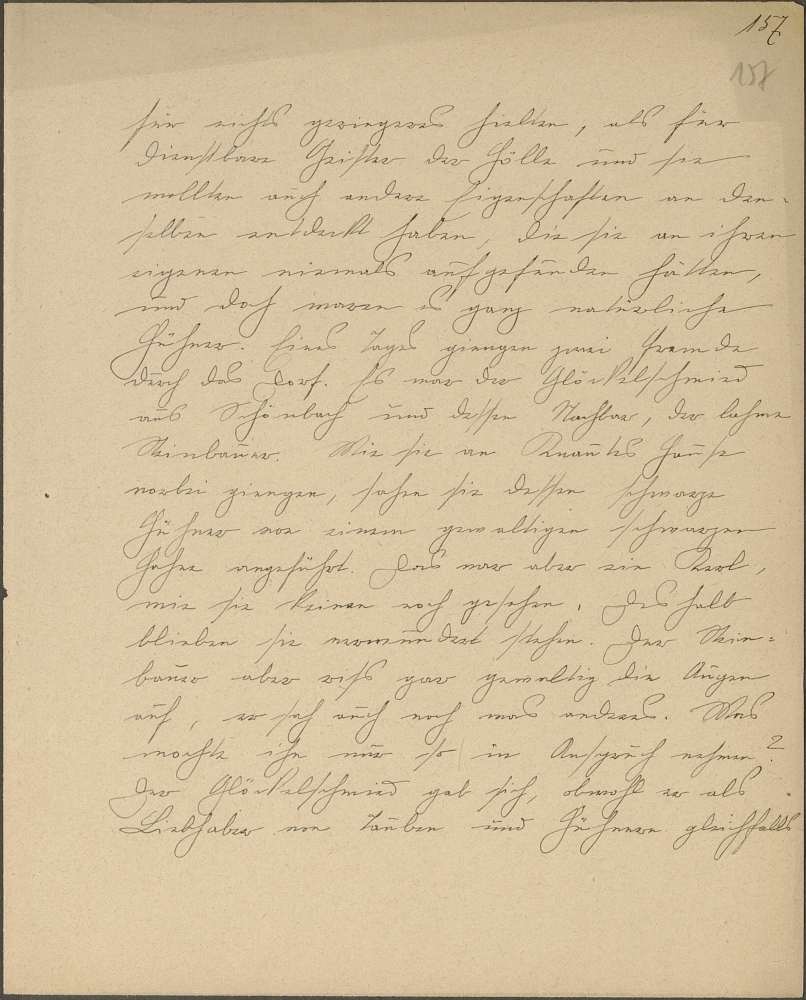 157
157
für nichts geringeres hielten, als für
dienstbare Geister der Hölle und sie
wollten auch andere Eigenschaften an den-
selben entdeckt haben, die sie an ihren
eigenen niemals aufgefunden hätten,
und doch waren es ganz natürliche
Hühner. Eines Tages giengen zwei Fremde
durch das Dorf. Es war der Glöckelschmied
aus Schönbach und dessen Nachbar, der lahme
Steinbauer. Wie sie an Knautes Hause
vorbei giengen, sahen sie dessen schwarze
Hühner von einem gewaltigen schwarzen
Hahne angeführt. Das war aber ein Kerl,
wie sie keinen noch gesehen. Deshalb
blieben sie verwundert stehen. Der Stein-
bauer aber riß gar gewaltig die Augen
auf, er sah auch noch was anderes. Was
mochte ihn nur so in Anspruch nehmen?
Der Glöckelschmied gab sich, obwohl er als
Liebhaber von Tauben und Hühnern gleichfalls